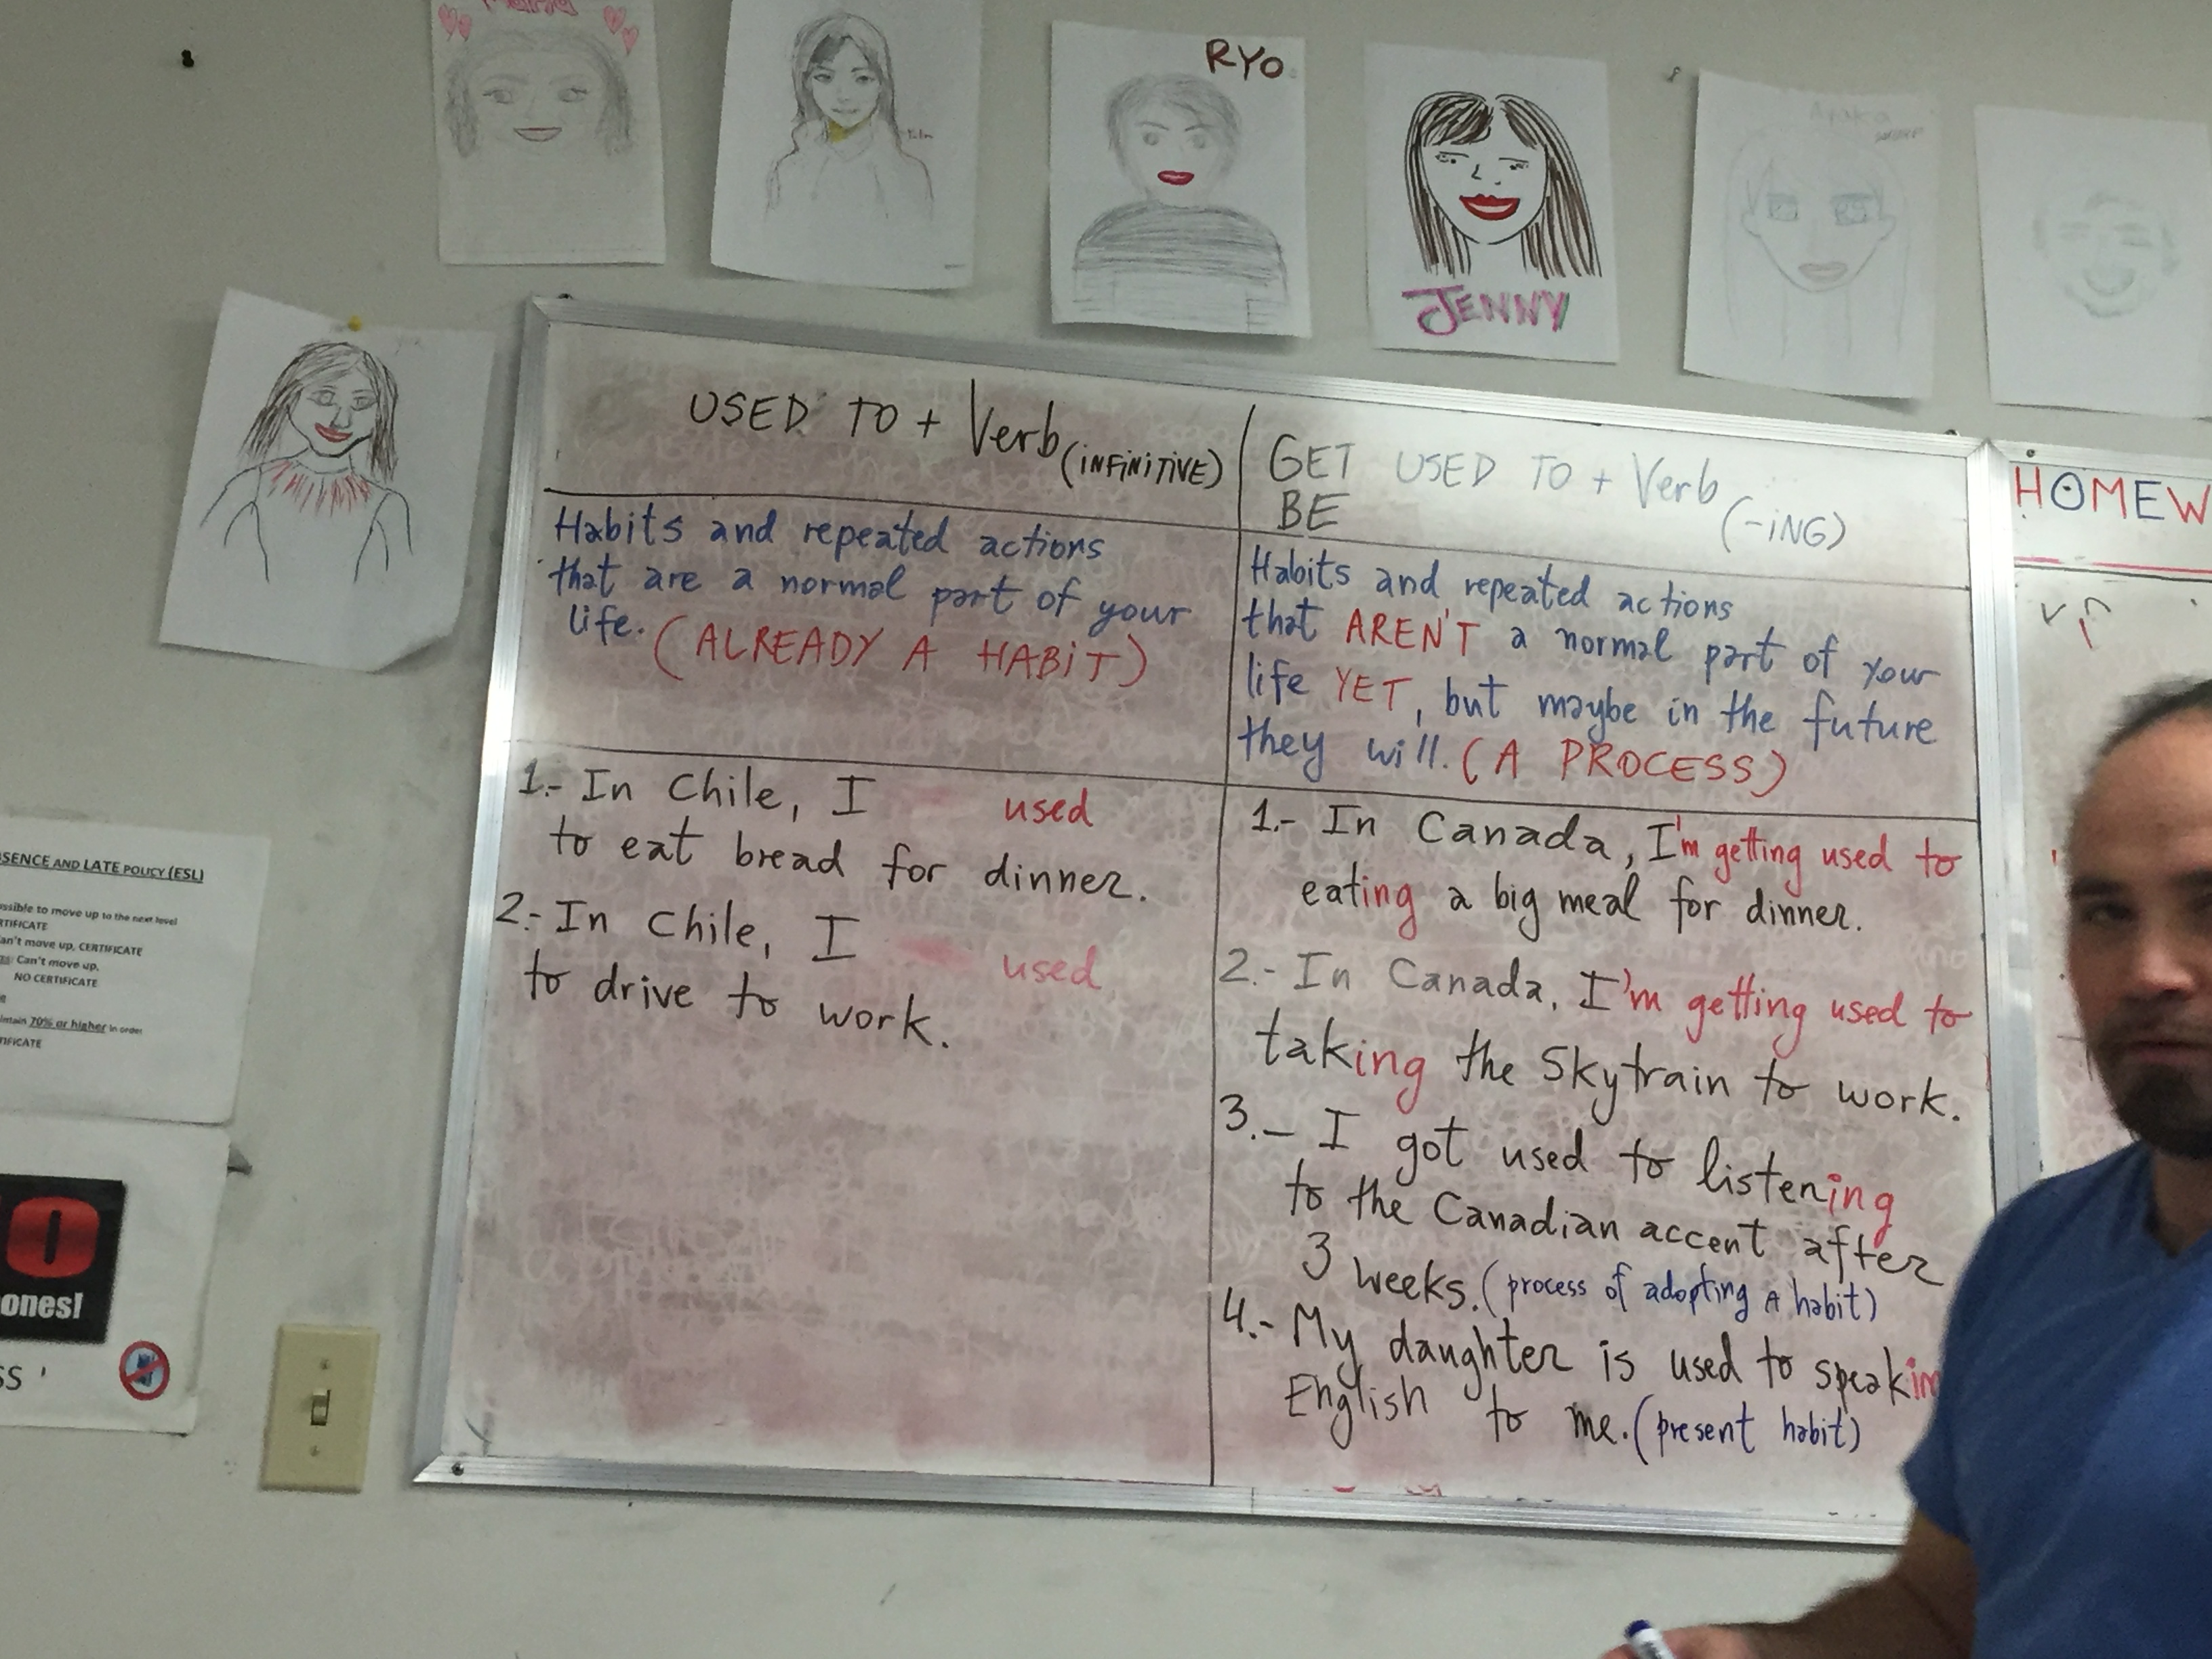 RYO
JENNY
USED TO + Verb (INFINITIVE)
Habits and repeated actions
that are a normal part of your
life. (ALREADY A HABIT)
1.- In Chile, I used
to eat bread for dinner.
2.- In Chile, I used
to drive to work.
GET USED TO + Verb
BE (-ING)
Habits and repeated actions
that AREN'T a normal part of your
life YET, but maybe in the future
they will. (A PROCESS)
1.- In Canada, I'm getting used to
eating a big meal for dinner.
2.- In Canada, I'm getting used to
taking the Skytrain to work.
3.- I got used to listening
to the Canadian accent after
3 weeks. (process of adopting A habit)
4.- My daughter is used to speakin
English to me. (present habit)
HOMEW
SENCE AND LATE POLICY (ESL)
ssible to move up to the next level
RTIFICATE
an't move up, CERTIFICATE
Can't move up,
NO CERTIFICATE
intain 70% or higher in order
TIFICATE
O
ones!
SS